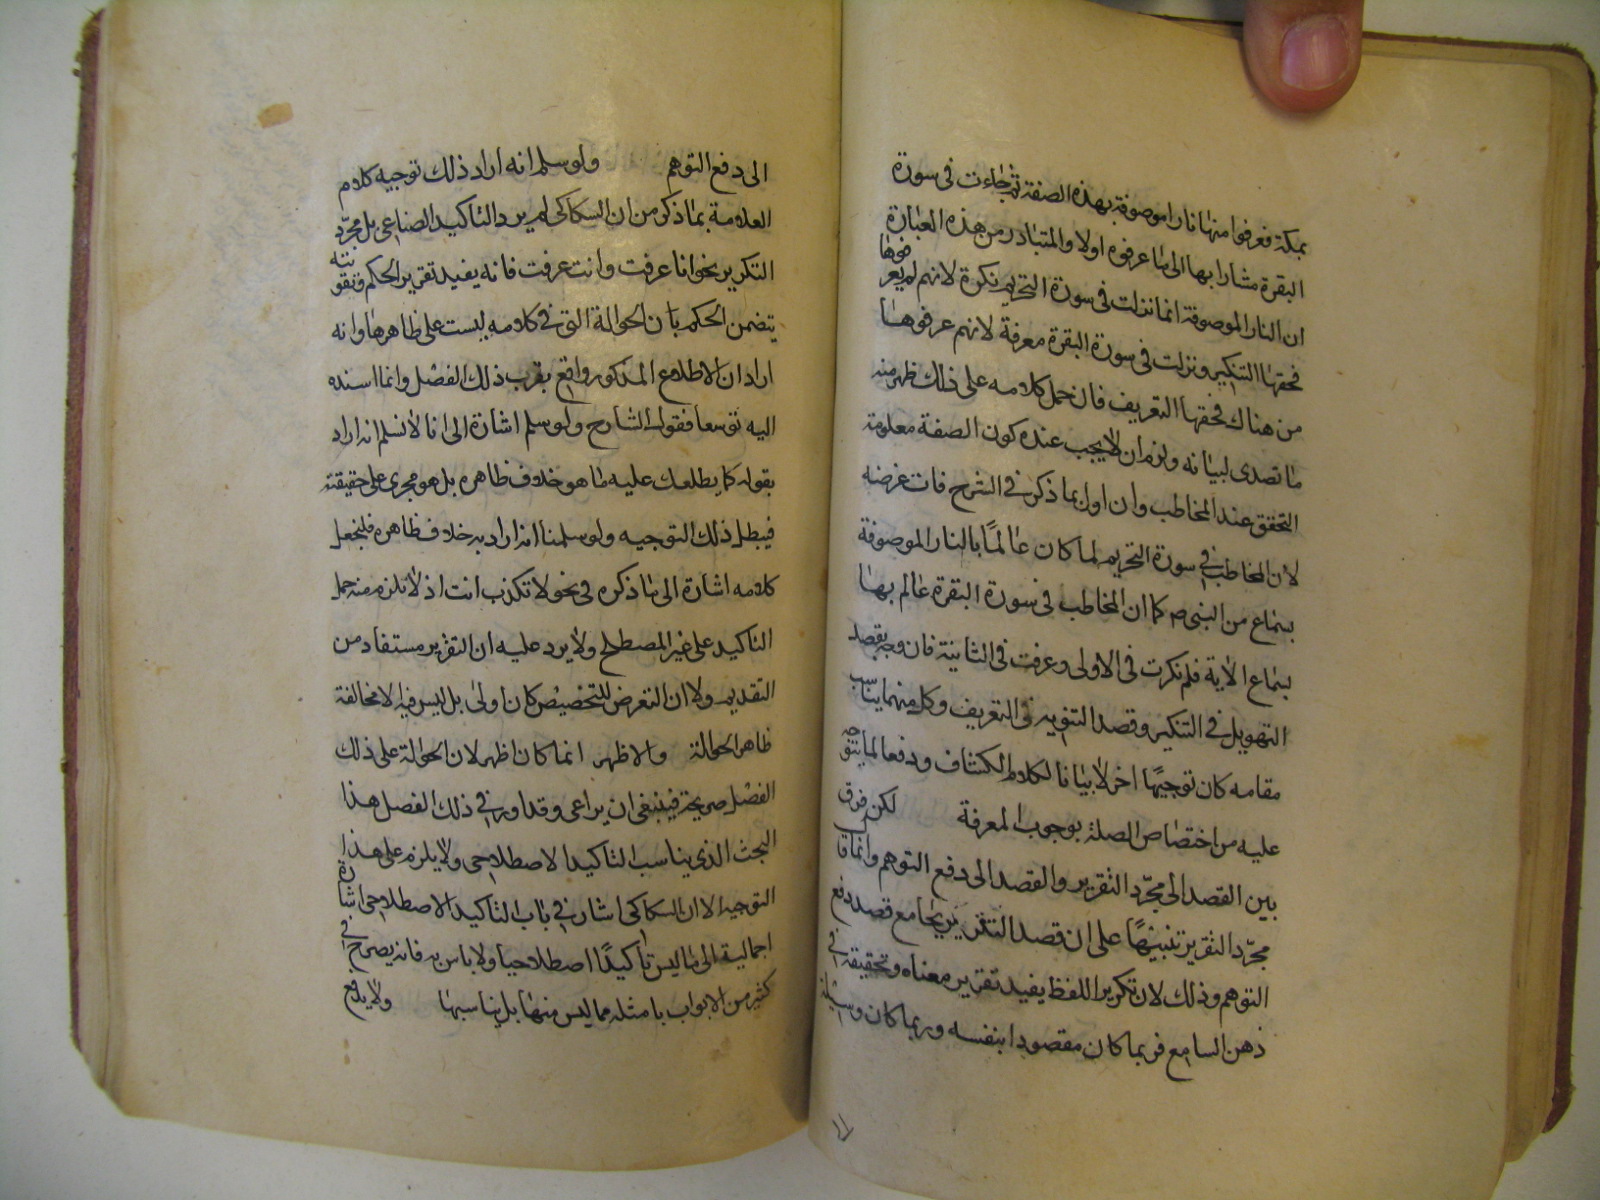 بمكة فعرفوا منها نارا موصوفة بهذه الصفة ثم جاءت في سورة
البقرة مشارا بها الى ما عرفوه اولا والمتبادر من هذه العبارة
ان النار الموصوفة انما نزلت في سورة التحريم نكرة لانهم لم يعرفوها
فحقها التنكير ونزلت في سورة البقرة معرفة لانهم عرفوها
من هناك فحقها التعريف فان حمل كلامه على ذلك ظهر منه
ما تصدى لبيانه ولزم ان لا يجب عنده كون الصفة معلومة
التحقق عند المخاطب وان اول بما ذكر في الشرح فات غرضه
لان المخاطب في سورة التحريم لما كان عالمًا بالنار الموصوفة
بسماع من النبي ص كما ان المخاطب في سورة البقرة عالم بها
بسماع الاية فلم نكرت في الاولى وعرفت في الثانية فان وجه بقصد
التهويل في التنكير وقصد التنويه في التعريف وكل منهما يناسب
مقامه كان توجيهًا اخر لا بيانا لكلام الكشاف ودفعا لما يتوجه
عليه من اختصاص الصلة بوجوب المعرفة لكن فرق
بين القصد الى مجرّد التقرير والقصد الى دفع التوهم وانما قال
مجرّد التقرير تنبيهًا على ان قصد التقرير يجامع قصد دفع
التوهم وذلك لان تكرير اللفظ يفيد تقرير معناه وتحقيقه في
ذهن السامع فربما كان مقصودا بنفسه وربما كان وسيلة
الى دفع التوهم ولو سلم انه اراد ذلك توجيه كلام
العلامة بما ذكر من ان السكاكي لم يرد التاكيد الصناعي بل مجرّد
التكرير نحو انا عرفت وانت عرفت فانه يفيد تقرير الحكم وتقويته
يتضمن الحكم بان الحوالة التي في كلامه ليست على ظاهرها وانه
اراد ان الاطلاع المذكور واقع بقرب ذلك الفصل وانما اسنده
اليه توسعا فقول الشارح ولو سلم اشارة الى انا لا نسلم انه اراد
بقوله كما يطلعك عليه ما هو خلاف ظاهره بل هو مجرى على حقيقته
فيبطل ذلك التوجيه ولو سلمنا انه اراد به خلاف ظاهره فلنجعل
كلامه اشارة الى ما ذكره في نحو لا تكذب انت اذ لا يلزم منه حمل
التاكيد على غير المصطلح ولا يرد عليه ان التقرير مستفاد من
التقديم ولا ان التعرض للتخصيص كان اولى بل ليس فيه الا مخالفة
ظاهر الحوالة والاظهر انما كان اظهر لان الحوالة على ذلك
الفصل صريحة فينبغي ان يراعى وقد اورد في ذلك الفصل هذا
البحث الذي يناسب التاكيد الاصطلاحي ولا يلزم على هذا
التوجيه الا ان السكاكي اشار في باب التاكيد الاصطلاحي اشارة
اجمالية الى ما ليس تاكيدًا اصطلاحيا ولا باس به فانه يصرح في
كثير من الابواب بامثلة مما ليس منها بل يناسبها ولا يدفع